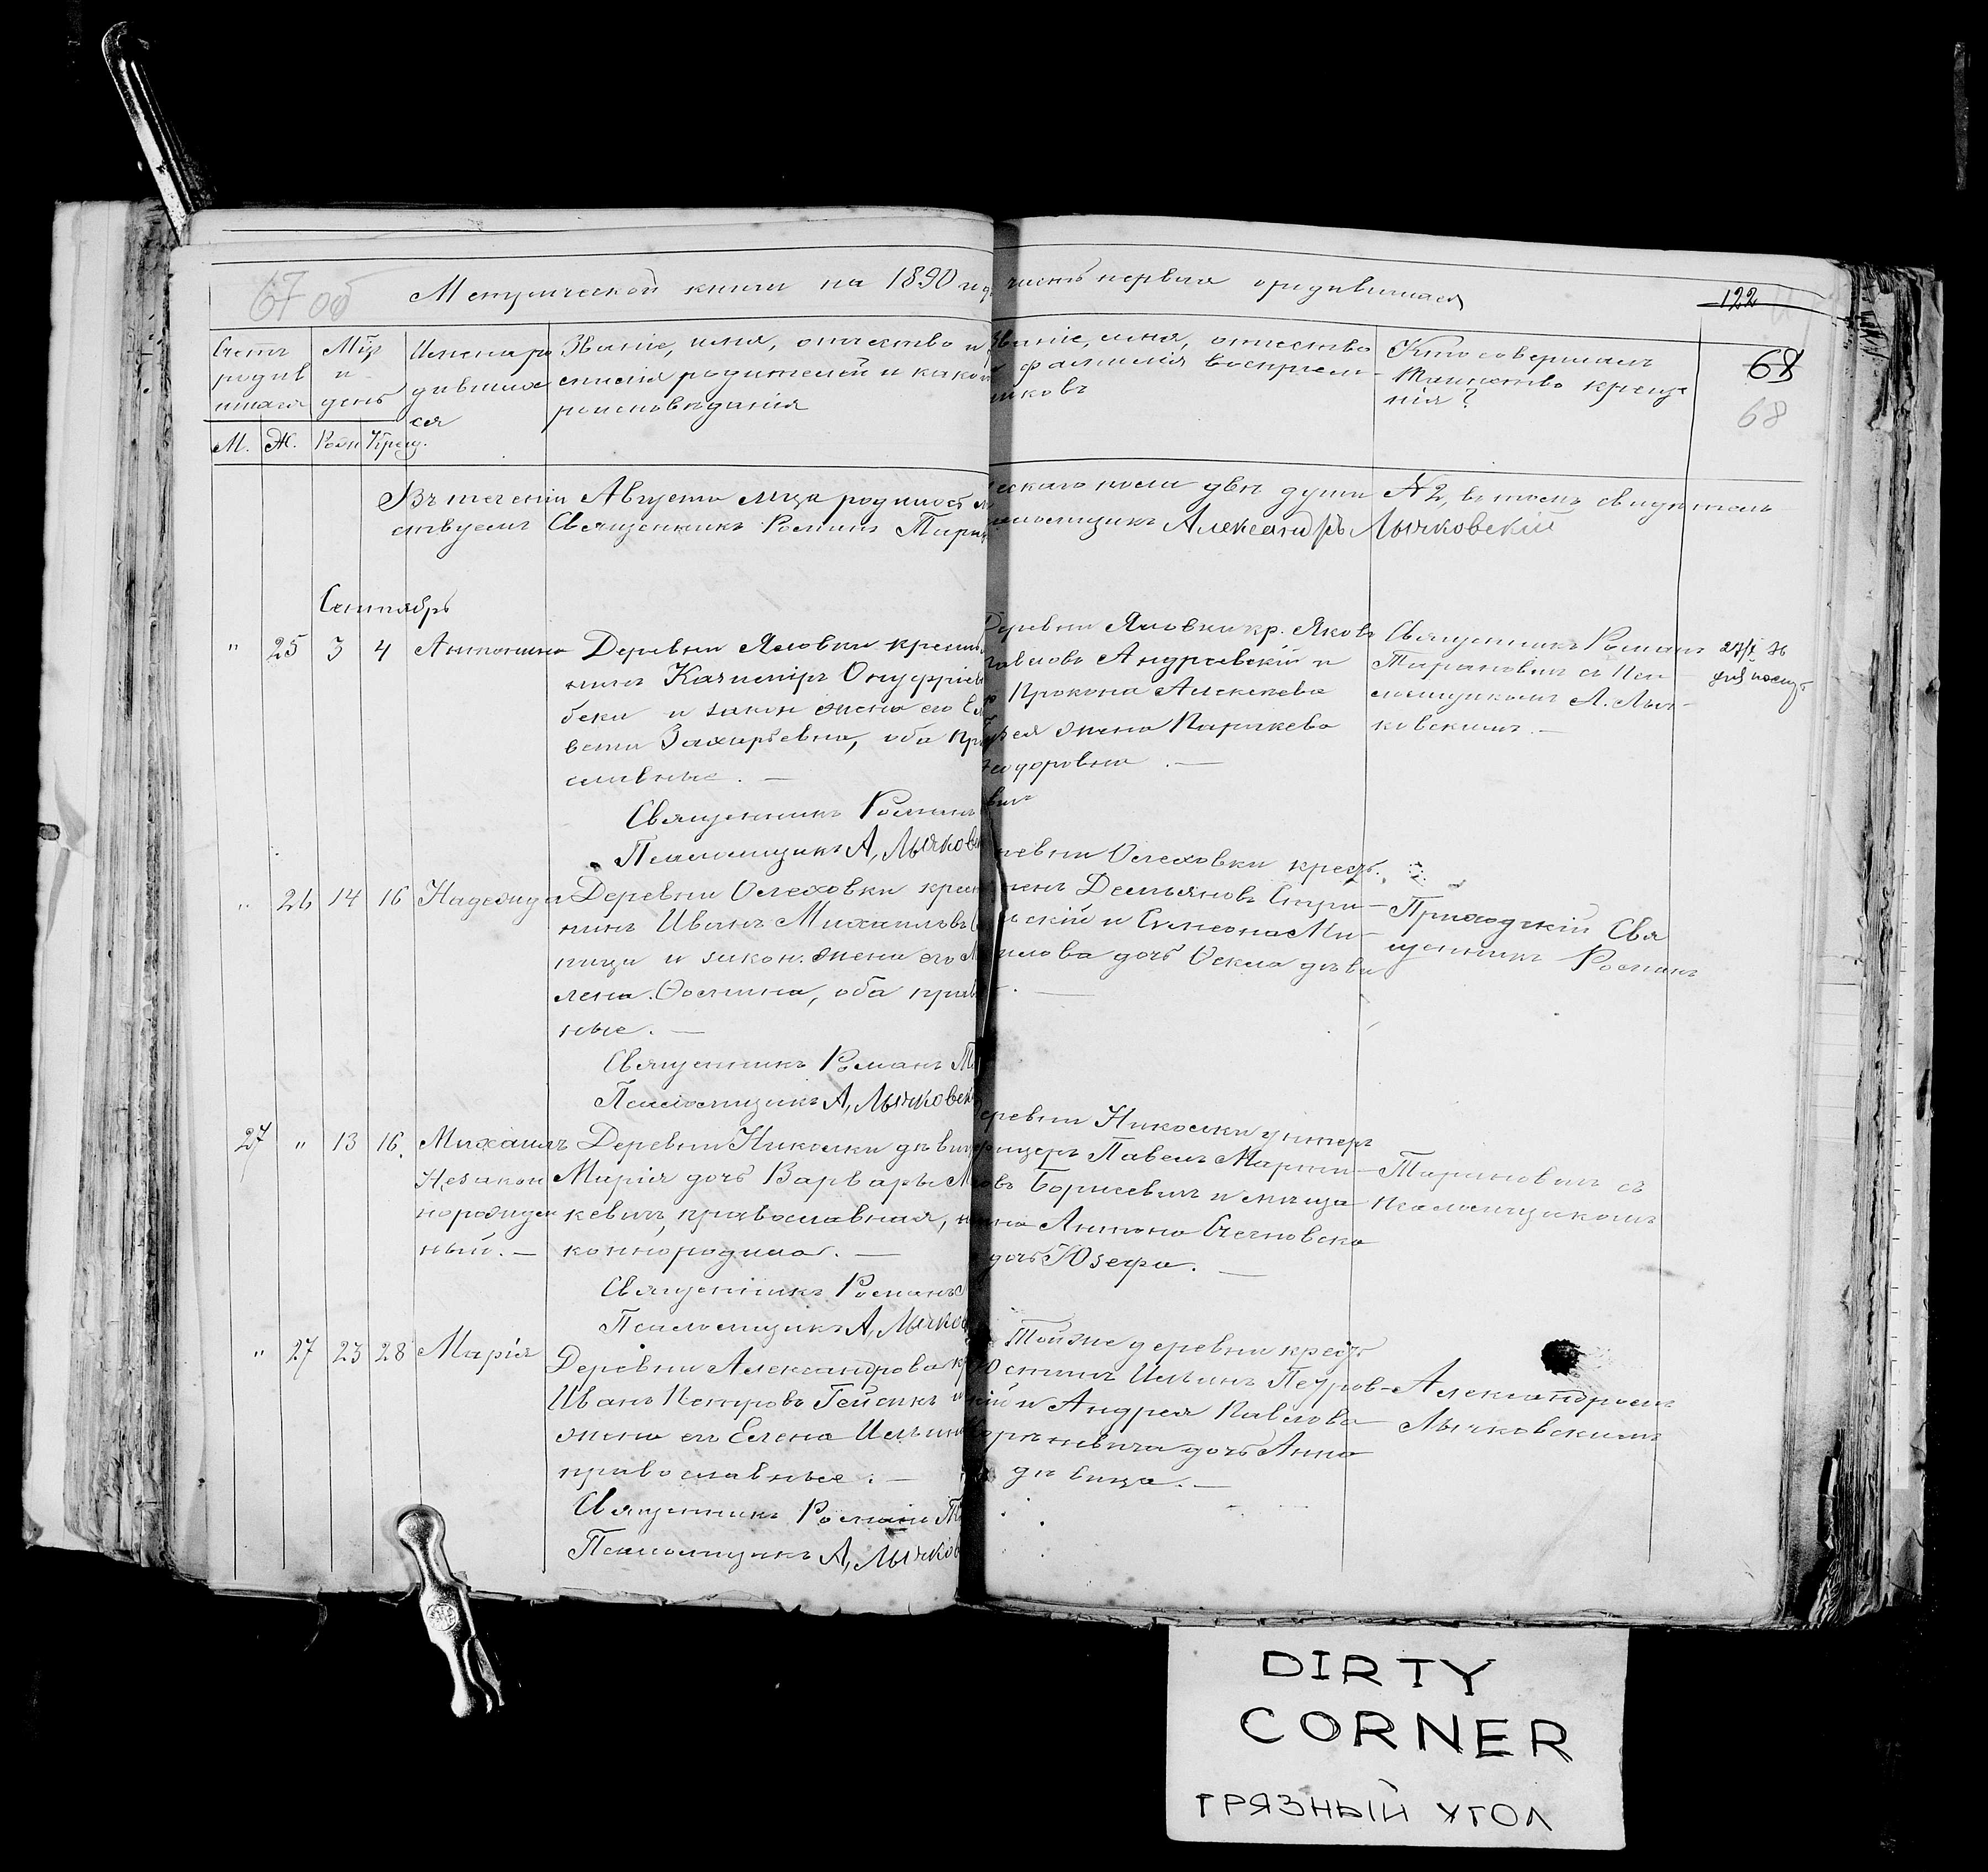 67 об
Метрической книги на 1890 годъ часть первая о родившихся
122
Счетъ родив шихся
Мцъ и день
Имена ро дившихся
Званіе, имя, отчество и
милія родителей и какой
роисповѣданія
Званіе, имя, отчество
и фамилія воспріем-
никовъ
Кто совершалъ
таинство креще
нія?
68
68
М. Ж. Рожд Крещ.
Въ теченіи Августа мца родилось ескаго пола двѣ души № 2, въ томъ свидѣтель
ствуемъ Священникъ Романъ Тара ломщикъ Александръ Лычковскій
Сентябрь
" 25 3 4 Антонина
Деревни Яловки крестья
нинъ Казиміръ Онуфріевъ
и закон жена его Ели
вета Захарьевна, оба пра
славные. —
Священникъ Романъ
Псаломщикъ А, Лычков
Деревни Яловки кр. Яковъ
Павловъ Андреевскій и
Прокопа Алексѣева
жена Параскева
Ѳеодоровна. —
вичъ
Священникъ Романъ
Тарановичъ съ Пса
ломщикомъ А. Лыч-
ковскимъ. —
" 26 14 16 Надежда
Деревни Олеховки крест
нинъ Иванъ Михаиловъ
ница и закон. жена его М
лена Ѳомина, оба прав
ные. —
Священникъ Романъ Т
Псаломщикъ А, Лычковск
ревни Олеховки крест.
менъ Демьяновъ Скури-
скій и Симеона Ми-
илова дочь Ѳекла дѣви
. —
Приходскій Свя
щенникъ Романъ
27 " 13 16. Михаилъ
Незакон
норожден
ный. —
Деревни Николки дѣвица
Марія дочь Варвары М
кевичъ, православная,
коннородила. —
Священникъ Романъ
Псаломщикъ А, Лычков
еревни Николки унтеръ
фицеръ Павелъ Марти-
овъ Борисевичъ и мѣща
нина Антона Счесновска
дочь Юзефа. —
Тарановичъ съ
псаломщикомъ
" 27 23 28 Марія
Деревни Александрова кр
Иванъ Петровъ Гейсикъ и
жена его Елена Ильин
православные. —
Священникъ Романъ Та
Псаломщикъ А, Лычков
Той же деревни крест
Юстинъ Ильинъ Петров-
скій и Андрея Павлова
дочь Анна
дѣвица. —
Александромъ
Лычковскимъ
DIRTY
CORNER
ГРЯЗНЫЙ УГОЛ